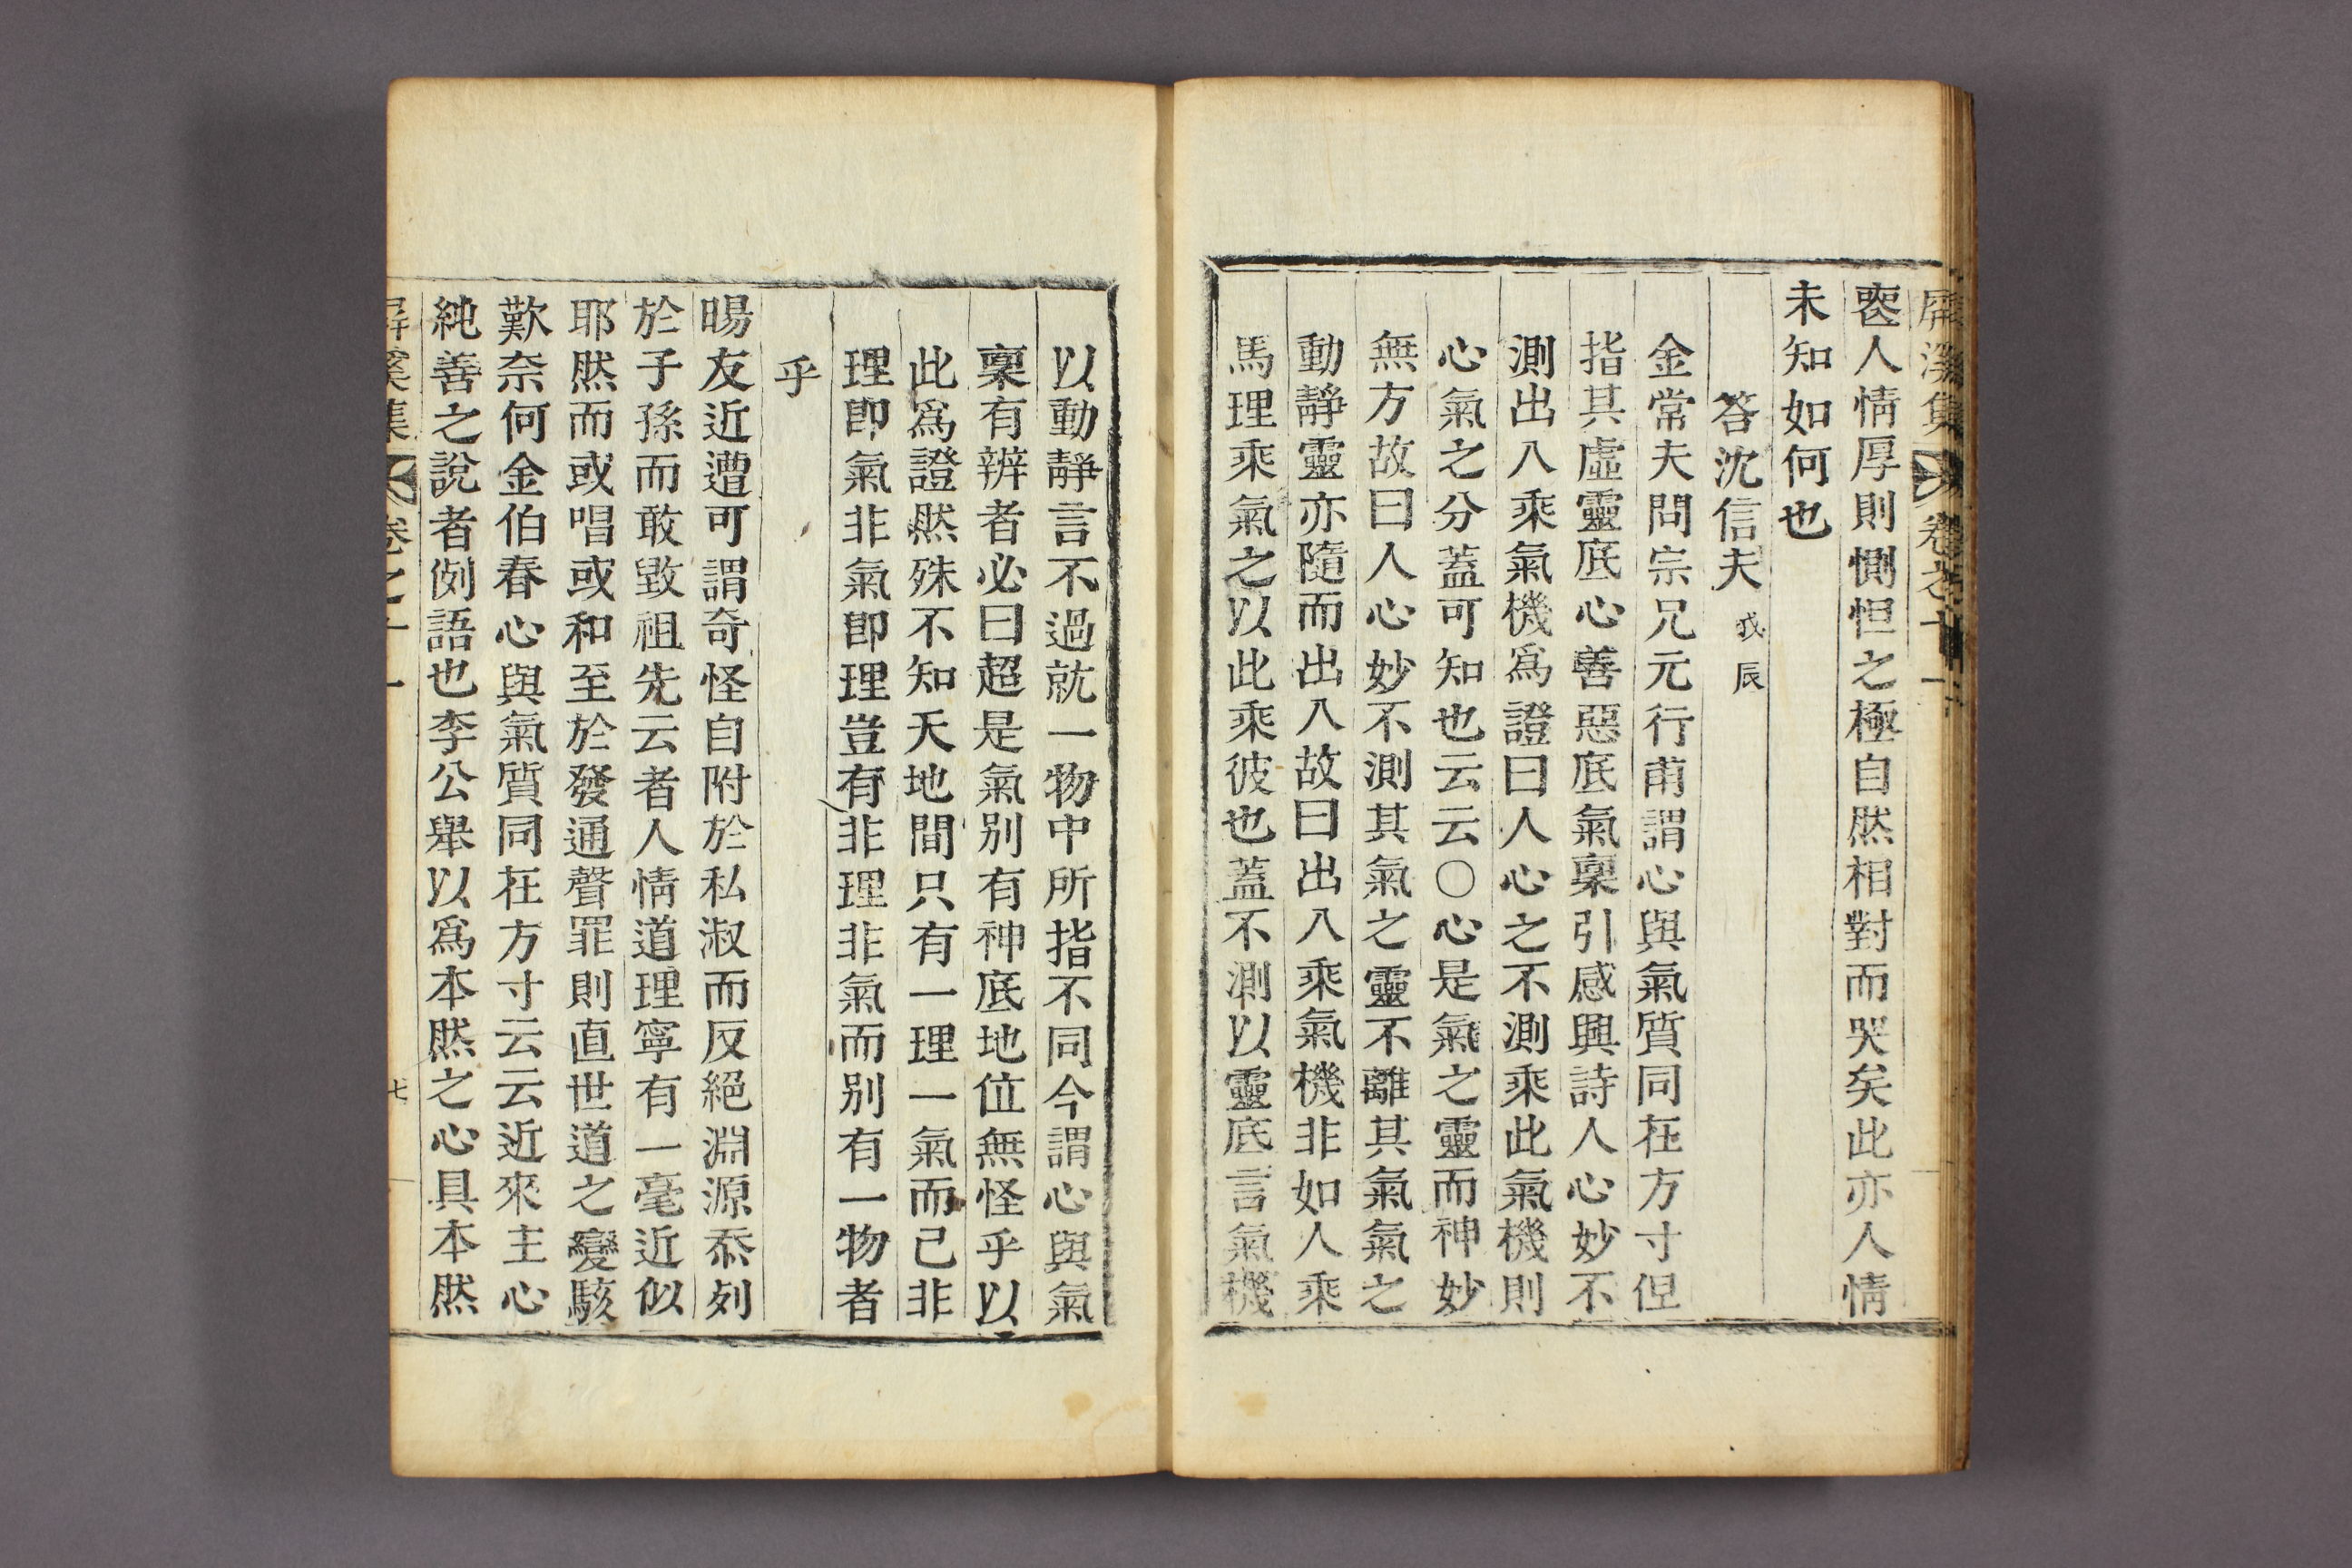 屛溪集 卷之十一
喪人情厚則惻怛之極自然相對而哭矣此亦人情
未知如何也
答沈信夫 戊辰
金常夫問宗兄元行甫謂心與氣質同在方寸但
指其虛靈底心善惡底氣稟引感興詩人心妙不
測出入乘氣機爲證曰人心之不測乘此氣機則
心氣之分蓋可知也云云○心是氣之靈而神妙
無方故曰人心妙不測其氣之靈不離其氣氣之
動靜靈亦隨而出入故曰出入乘氣機非如人乘
馬理乘氣之以此乘彼也蓋不測以靈底言氣機
以動靜言不過就一物中所指不同今謂心與氣
稟有辨者必曰超是氣別有神底地位無怪乎以
此爲證然殊不知天地間只有一理一氣而已非
理卽氣非氣卽理豈有非理非氣而別有一物者
乎
暘友近遭可謂奇怪自附於私淑而反絕淵源忝列
於子孫而敢毀祖先云者人情道理寧有一毫近似
耶然而或唱或和至於發通聲罪則直世道之變駭
歎奈何金伯春心與氣質同在方寸云云近來主心
純善之說者例語也李公擧以爲本然之心具本然
屛溪集 卷之十一 七